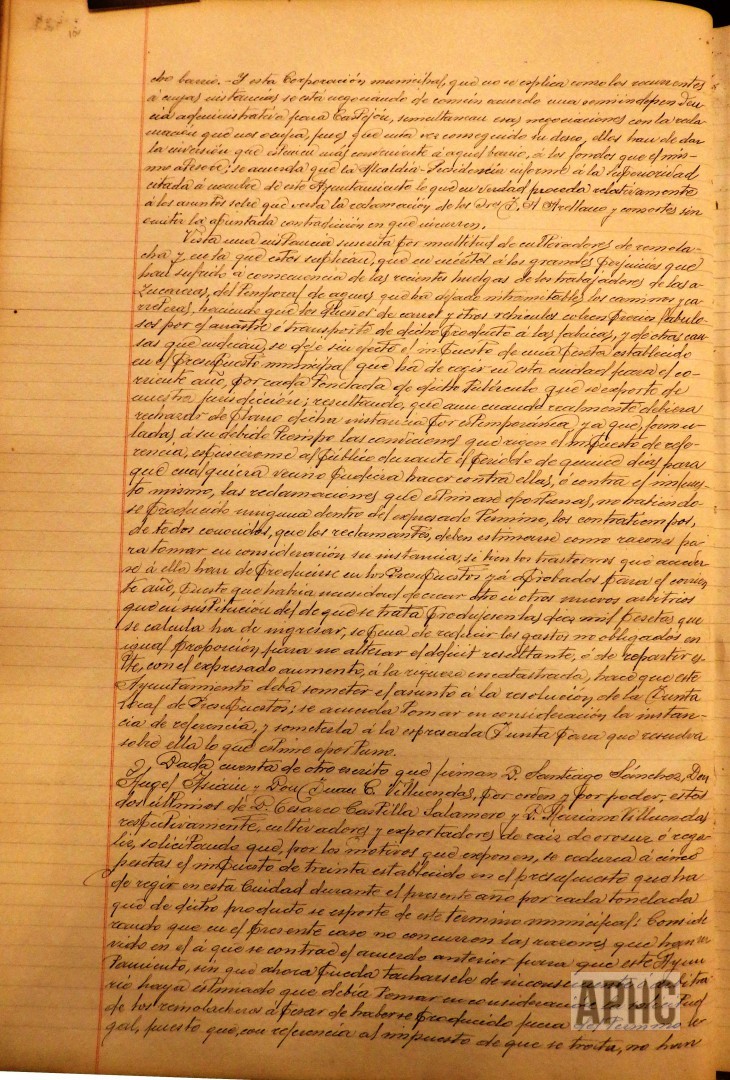 cho barrio.- Y esta Corporación municipal, que no se explica como los recurrentes
á cuyas instancias se está negociando de común acuerdo una semi independen
cia administrativa para Castejón, simultanean esas negociaciones con la recla
mación que nos ocupa, pues que una vez conseguido su deseo, ellos han de dar
la inversión que estimen más conveniente á aquel barrio, á los fondos que el mis-
mo atesore; se acuerda que la Alcaldía-Presidencia informe á la Superioridad
citada á nombre de este Ayuntamiento lo que en verdad proceda relativamente
á los asuntos sobre que versa la reclamación de los Sres. Arellano y consortes sin
omitir la apuntada contradición en que incurren.
Vista una instancia suscrita por multitud de cultivadores de remola-
cha y en la que estos suplican, que en méritos á los grandes perjuicios que
han sufrido á consecuencia de las recientes huelgas de los trabajadores de las a-
zucareras, del temporal de aguas que ha dejado intransitables los caminos y ca-
rreteras, haciendo que los dueños de carros y otros vehículos cobren precios fabulo-
sos por el arrastre ó transporte de dicho producto á las fábricas, y de otras cau-
sas que indican, se deje sin efecto el impuesto de una peseta establecido
en el Presupuesto municipal que ha de regir en esta ciudad para el co-
rriente año, por cada tonelada de dicho tubérculo que se exporte de
nuestra jurisdicción; resultando, que aun cuando realmente debiera
rechazar de plano dicha instancia por estemporánea, ya que, formu-
ladas, á su debido tiempo las condiciones que rigen el impuesto de refe-
rencia, estuvieron al público durante el periodo de quince días para
que cualquiera vecino pudiera hacer contra ellas, ó contra el impues-
to mismo, las reclamaciones que estimase oportunas, no habiendo-
se producido ninguna dentro del expresado término, los contratiempos,
de todos conocidos, que los reclamantes, deben estimarse como razones pa-
ra tomar en consideración su instancia, si bien los trastornos que acceder
se á ella han de producirse en los Presupuestos ya aprobados para el corrien
te año, puesto que habría necesidad de crear otro ú otros nuevos arbitrios
que en sustitución del de que se trata produjesen las diez mil pesetas que
se calcula ha de ingresar, so pena de reducir los gastos no obligados en
igual proporción para no alterar el déficit resultante, ó de repartir es-
te, con el expresado aumento, á la riqueza encatastrada, hace que este
Ayuntamiento deba someter el asunto á la resolución de la Junta
local de Presupuestos; se acuerda tomar en consideración la instan-
cia de referencia, y someterla á la expresada Junta para que resuelva
sobre ella lo que estime oportuno.
Dada cuenta de otro escrito que firman D. Santiago Sánchez, Don
Angel Asiain y Don Juan C. Villuendas, por orden y por poder, estos
dos últimos de D. Cesareo Castilla Salamero y D. Mariano Villuendas
respectivamente, cultivadores y exportadores de raiz de orozuz ó rega-
liz, solicitando que, por los motivos que exponen, se reduzca á cinco
pesetas el impuesto de treinta establecido en el presupuesto que ha
de regir en esta Ciudad durante el presente año por cada tonelada
que de dicho producto se exporte de este término municipal: Conside
rando que en el presente caso no concurren las razones que han in
vido en el á que se contrae el acuerdo anterior para que este Ayun
tamiento, sin que ahora pueda tachársele de inconsecuente ó arbitra-
rio haya estimado que debía tomar en consideración la solicitud
de los remolacheros á pesar de haberse producido fuera del término le
gal, puesto que, con referencia al impuesto de que se trata, no han
APHC